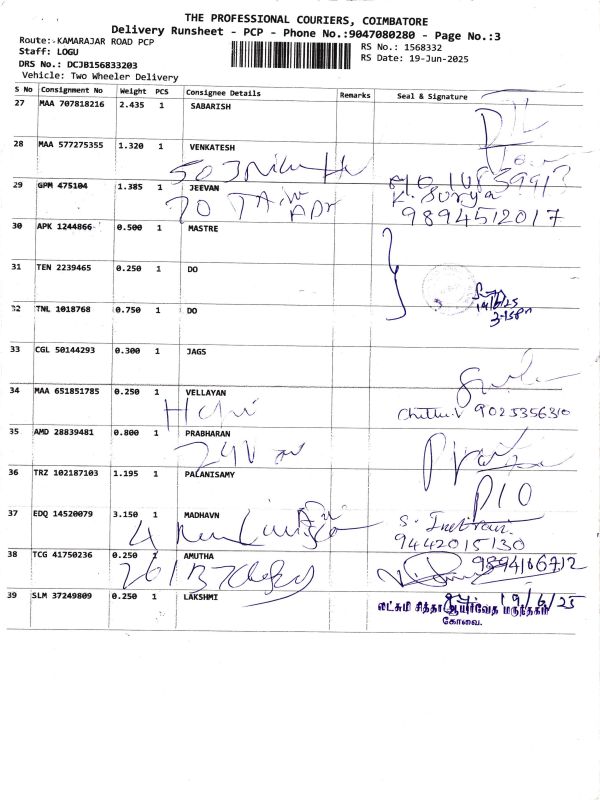 THE PROFESSIONAL COURIERS, COIMBATORE
Delivery Runsheet - PCP - Phone No.:9047080280 - Page No.:3
Route:- KAMARAJAR ROAD PCP
RS No.: 1568332
Staff: LOGU
RS Date: 19-Jun-2025
DRS No.: DCJB156833203
Vehicle: Two Wheeler Delivery
S No Consignment No Weight PCS Consignee Details Remarks Seal & Signature
27 MAA 707818216 2.435 1 SABARISH
28 MAA 577275355 1.320 1 VENKATESH
29 GPM 475104 1.385 1 JEEVAN
K. Surya
70
9894512017
30 APK 1244866 0.500 1 MASTRE
31 TEN 2239465 0.250 1 DO
32 TNL 1018768 0.750 1 DO
33 CGL 50144293 0.300 1 JAGS
34 MAA 651851785 0.250 1 VELLAYAN
9025356310
35 AMD 28839481 0.800 1 PRABHARAN
36 TRZ 102187103 1.195 1 PALANISAMY
37 EDQ 14520079 3.150 1 MADHAVN
9442015130
38 TCG 41750236 0.250 1 AMUTHA
9894166712
39 SLM 37249809 0.250 1 LAKSHMI
19/6/25
லட்சுமி சித்தா ஆயுர்வேத மருந்தகம்
கோவை.